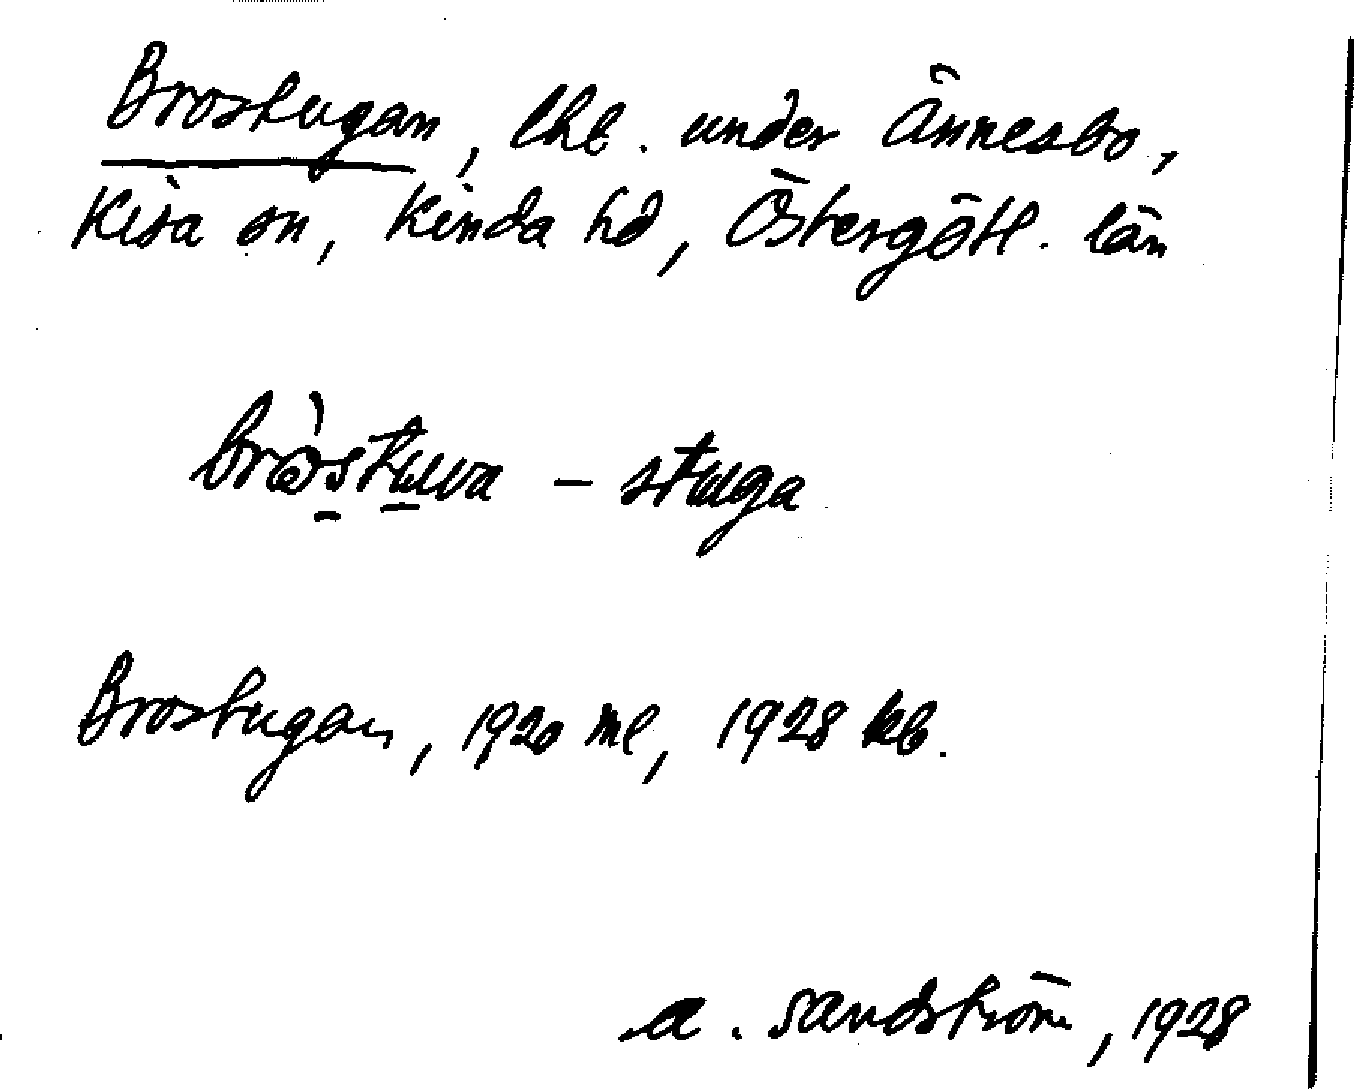 Brostugan, lht. under Ännesbo,
Kisa sn, Kinda hd, Östergötl. län
– stuga
Brostugan, 1920 ml, 1928 kb.
A. Sandström, 1928